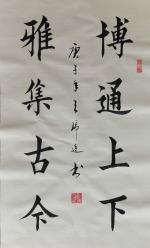 博通上下
雅集古今
庚子年
书